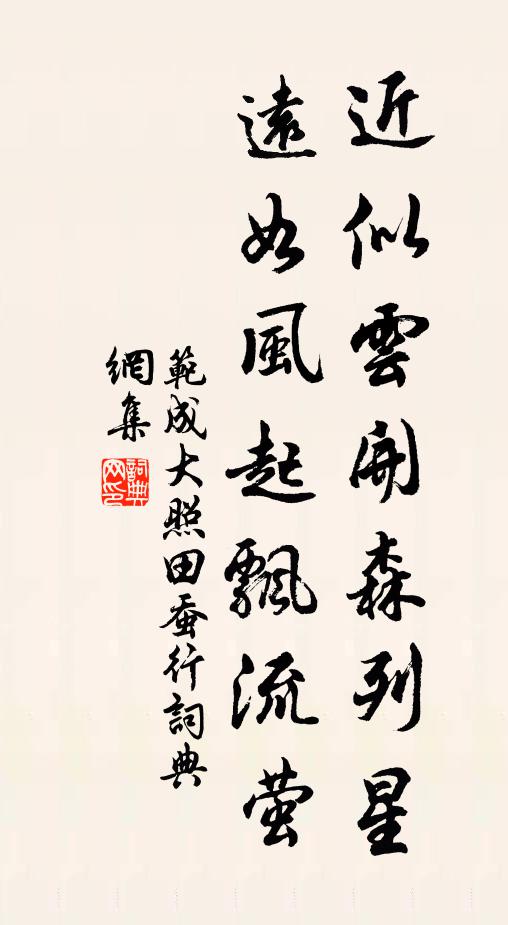 近似雲開森列星
遠如風起飄流螢
範成大照田蚕行詞典
網集
詞典网印